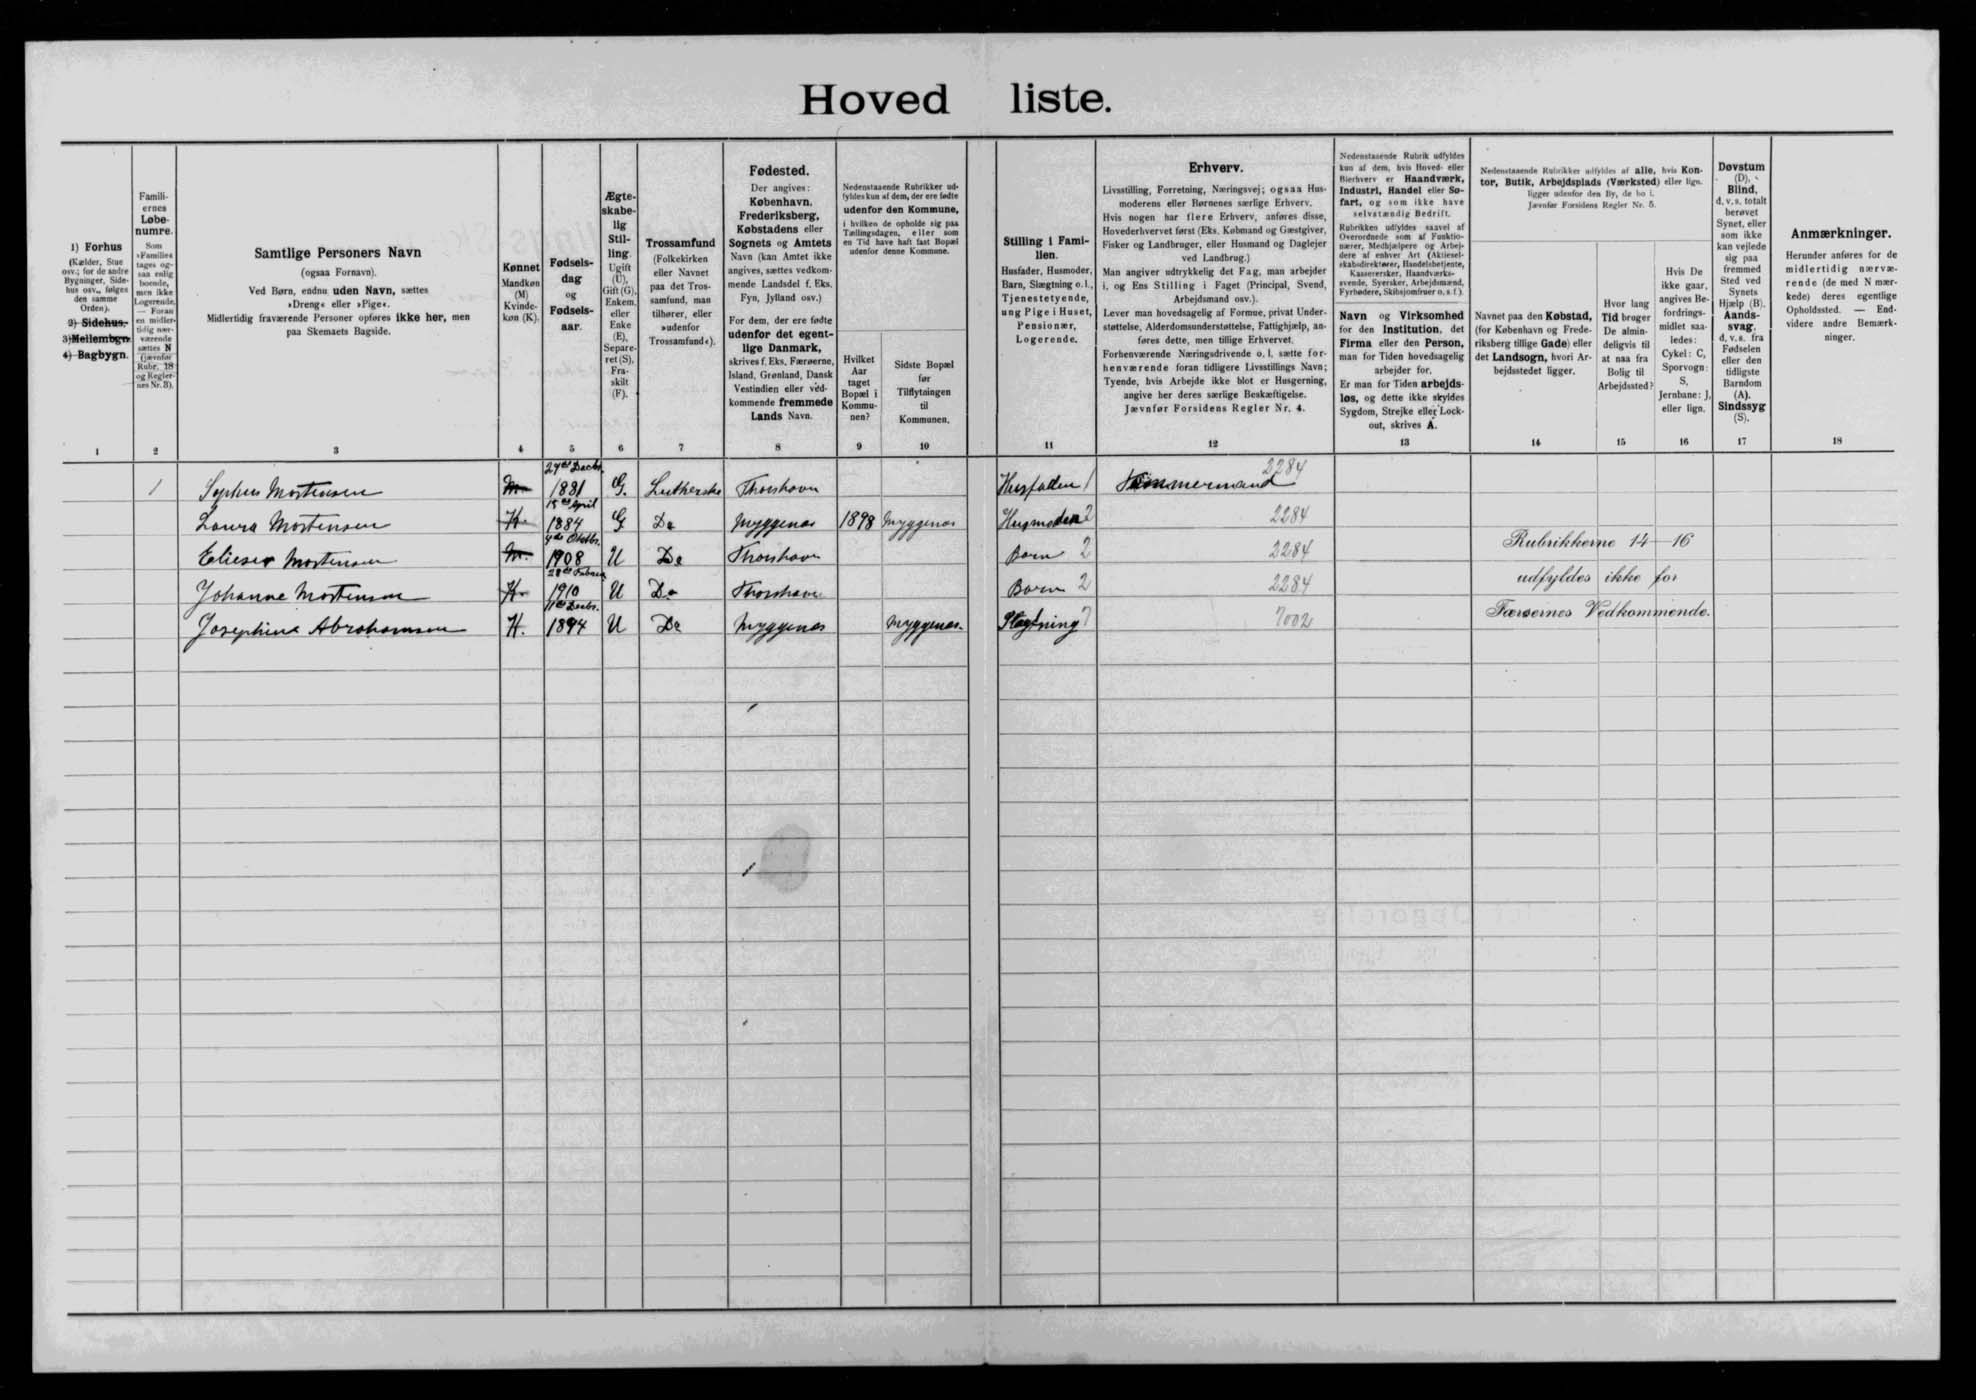 Hoved liste.
1) Forhus
(Kælder, Stue
osv.; for de andre
Bygninger, Side-
hus osv., følges
den samme
Orden).
2) Sidehus.
3) Mellembgn.
4) Bagbygn.
1
Famili-
ernes
Løbe-
numre.
Som
»Familie«
tages og-
saa enlig
boende,
men ikke
Logerende.
— Foran
en midler-
tidig nær-
værende
sættes N
(jævnfør
Rubr. 18
og Regler-
nes Nr. 3).
2
Samtlige Personers Navn
(ogsaa Fornavn).
Ved Børn, endnu uden Navn, sættes
»Dreng« eller »Pige«.
Midlertidig fraværende Personer opføres ikke her, men
paa Skemaets Bagside.
3
Kønnet
Mandkøn
(M)
Kvinde-
køn (K).
4
Fødsels-
dag
og
Fødsels-
aar.
5
Ægte-
skabe-
lig
Stil-
ling.
Ugift
(U),
Gift (G),
Enkem.
eller
Enke
(E),
Separe-
ret (S),
Fra-
skilt
(F).
6
Trossamfund
(Folkekirken
eller Navnet
paa det Tros-
samfund, man
tilhører, eller
»udenfor
Trossamfund«).
7
Fødested.
Der angives:
København,
Frederiksberg,
Købstadens eller
Sognets og Amtets
Navn (kan Amtet ikke
angives, sættes vedkom-
mende Landsdel f. Eks.
Fyn, Jylland osv.)
For dem, der ere fødte
udenfor det egent-
lige Danmark,
skrives f. Eks. Færøerne,
Island, Grønland, Dansk
Vestindien eller ved-
kommende fremmede
Lands Navn.
8
Nedenstaaende Rubrikker ud-
fyldes kun af dem, der ere fødte
udenfor den Kommune,
i hvilken de opholde sig paa
Tællingsdagen, eller som
en Tid have haft fast Bopæl
udenfor denne Kommune.
Hvilket
Aar
taget
Bopæl i
Kommu-
nen?
9
Sidste Bopæl
før
Tilflytningen
til
Kommunen.
10
Stilling i Fami-
lien.
Husfader, Husmoder,
Barn, Slægtning o. l.,
Tjenestetyende,
ung Pige i Huset,
Pensionær,
Logerende.
11
Erhverv.
Livsstilling, Forretning, Næringsvej; ogsaa Hus-
moderens eller Børnenes særlige Erhverv.
Hvis nogen har flere Erhverv, anføres disse,
Hovederhvervet først (Eks. Købmand og Gæstgiver,
Fisker og Landbruger, eller Husmand og Daglejer
ved Landbrug.)
Man angiver udtrykkelig det Fag, man arbejder
i, og Ens Stilling i Faget (Principal, Svend,
Arbejdsmand osv.).
Lever man hovedsagelig af Formue, privat Under-
støttelse, Alderdomsunderstøttelse, Fattighjælp, an-
føres dette, men tillige Erhvervet.
Forhenværende Næringsdrivende o. l. sætte for-
henværende foran tidligere Livsstillings Navn;
Tyende, hvis Arbejde ikke blot er Husgerning,
angive her deres særlige Beskæftigelse.
Jævnfør Forsidens Regler Nr. 4.
12
Nedenstaaende Rubrik udfyldes
kun af dem, hvis Hoved- eller
Bierhverv er Haandværk,
Industri, Handel eller Sø-
fart, og som ikke have
selvstændig Bedrift.
Rubrikken udfyldes saavel af
Overordnede som af Funktio-
nærer, Medhjælpere og Arbej-
dere af enhver Art (Aktiesel-
skabsdirektører, Handelsbetjente,
Kassererske​r, Haandværks-
svende, Syersker, Arbejdsmænd,
Fyrbødere, Skibsjomfruer o. s. f.).
Navn og Virksomhed
for den Institution, det
Firma eller den Person,
man for Tiden hovedsagelig
arbejder for.
Er man for Tiden arbejds-
løs, og dette ikke skyldes
Sygdom, Strejke eller Lock-
out, skrives A.
13
Nedenstaaende Rubrikker udfyldes af alle, hvis Kon-
tor, Butik, Arbejdsplads (Værksted) eller lign.
ligger udenfor den By, de bo i.
Jævnfør Forsidens Regler Nr. 5.
Navnet paa den Købstad,
(for København og Frede-
riksberg tillige Gade) eller
det Landsogn, hvori Ar-
bejdsstedet ligger.
14
Hvor lang
Tid bruger
De almin-
deligvis til
at naa fra
Bolig til
Arbejdssted?
15
Hvis De
ikke gaar,
angives Be-
fordrings-
midlet saa-
ledes:
Cykel: C,
Sporvogn:
S,
Jernbane: J,
eller lign.
16
Døvstum
(D),
Blind,
d. v. s. totalt
berøvet
Synet, eller
som ikke
kan vejlede
sig paa
fremmed
Sted ved
Synets
Hjælp (B).
Aands-
svag,
d. v. s. fra
Fødselen
eller den
tidligste
Barndom
(A).
Sindssyg
(S).
17
Anmærkninger.
Herunder anføres for de
midlertidig nærvæ-
rende (de med N mær-
kede) deres egentlige
Opholdssted. — End-
videre andre Bemærk-
ninger.
18
1 Sophus Mortensen M. 24de Decbr. 1881 G. Lutherske Thorshavn Husfader 1 Tømmermand 2284
Laura Mortensen K. 15de April 1884 G Do Myggenæs 1898 Myggenæs Husmoder 2 2284
Elieser Mortensen M. 4de Oktbr. 1908 U Do Thorshavn Barn 2 2284
Johanne Mortensen K. 28de Februar 1910 U Do Thorshavn Barn 2 2284
Josephine Abrahamsen K. 11te Decbr. 1894 U Do Myggenæs Myggenæs. Slægtning 7 7002
Rubrikkerne 14-16
udfyldes ikke for
Færøernes Vedkommende.